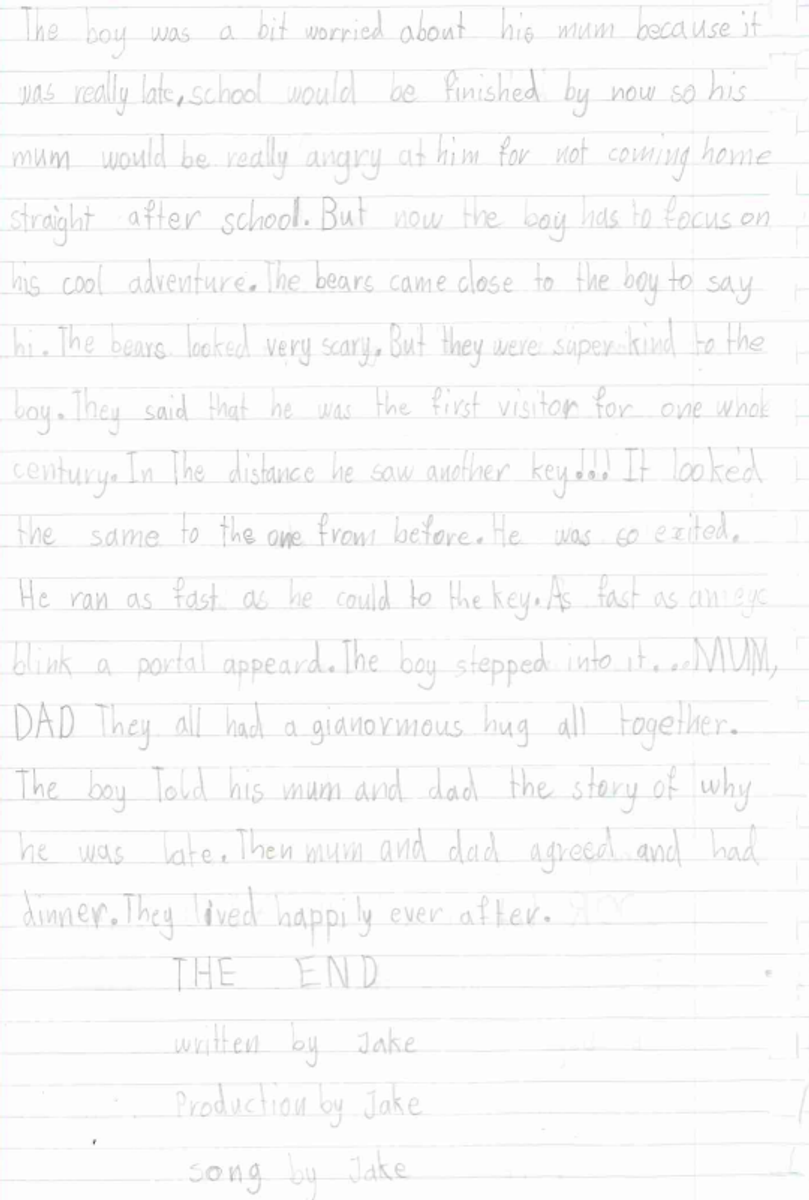 The boy was a bit worried about his mum because it
was really late, school would be finished by now so his
mum would be really angry at him for not coming home
straight after school. But now the boy has to focus on
his cool adventure. The bears came close to the boy to say
hi. The bears looked very scary. But they were super kind to the
boy. They said that he was the first visitor for one whole
century. In The distance he saw another key!!! It looked
the same to the one from before. He was so exited.
He ran as fast as he could to the key. As fast as an eye
blink a portal appeard. The boy stepped into it...MUM,
DAD They all had a gianormous hug all together.
The boy Told his mum and dad the story of why
he was late. Then mum and dad agreed and had
dinner. They lived happily ever after.
THE END
written by Jake
Production by Jake
song by Jake